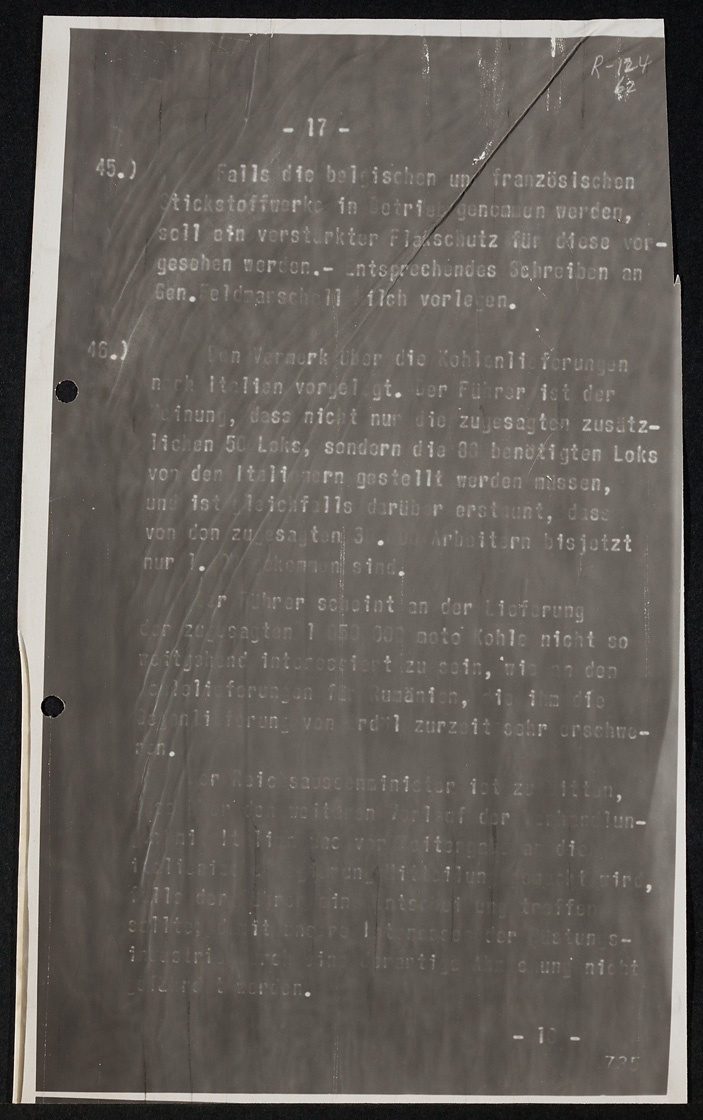 R-124
62
- 17 -
45.) Falls die belgischen und französischen
Stickstoffwerke in Betrieb genommen werden,
soll ein verstärkter Flakschutz für diese vor-
gesehen werden.- Entsprechendes Schreiben an
Gen.Feldmarschall Milch vorlegen.
46.) Den Vermerk über die Kohlenlieferungen
nach Italien vorgelegt. Der Führer ist der
Meinung, dass nicht nur die zugesagten zusätz-
lichen 50 Loks, sondern die benötigten Loks
von den Italienern gestellt werden müssen,
und ist gleichfalls darüber erstaunt, dass
von den zugesagten Arbeitern bisjetzt
nur gekommen sind.
Der Führer scheint an der Lieferung
der zugesagten 1 050 000 moto Kohle nicht so
weitgehend interessiert zu sein, wie an den
für Rumänien, die ihm die
Gegenlieferung von Erdöl zurzeit sehr erschwe-
ren.
Der Reichsaussenminister ist zu bitten,
den weiteren Verlauf der Verhandlun-
gen mit Italien vor Weitergabe an die
italienische Regierung Mitteilung gemacht wird,
falls der Führer eine Entscheidung treffen
sollte, damit unsere Interessen der Rüstungs-
industrie durch eine derartige nicht
werden.
- 18 -
735